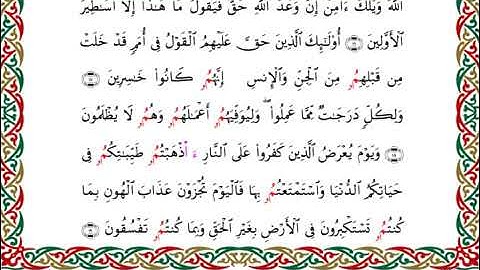 ٱللَّهَ وَيْلَكَ ءَامِنْ إِنَّ وَعْدَ ٱللَّهِ حَقٌّ فَيَقُولُ مَا هَٰذَا إِلَّا أَسَٰطِيرُ
ٱلْأَوَّلِينَ أُوْلَٰٓئِكَ ٱلَّذِينَ حَقَّ عَلَيْهِمُ ٱلْقَوْلُ فِي أُمَمٍ قَدْ خَلَتْ
مِن قَبْلِهِمُۥ مِنَ ٱلْجِنِّ وَٱلْإِنسِ إِنَّهُمُۥ كَانُوا۟ خَٰسِرِينَ
وَلِكُلٍّ دَرَجَٰتٌ مِّمَّا عَمِلُوا۟ وَلِيُوَفِّيَهُمُۥ أَعْمَٰلَهُمُۥ وَهُمُۥ لَا يُظْلَمُونَ
وَيَوْمَ يُعْرَضُ ٱلَّذِينَ كَفَرُوا۟ عَلَى ٱلنَّارِ ءَأَذْهَبْتُمُۥ طَيِّبَٰتِكُمُۥ فِي
حَيَاتِكُمُ ٱلدُّنْيَا وَٱسْتَمْتَعْتُمُۥ بِهَا فَٱلْيَوْمَ تُجْزَوْنَ عَذَابَ ٱلْهُونِ بِمَا
كُنتُمُۥ تَسْتَكْبِرُونَ فِي ٱلْأَرْضِ بِغَيْرِ ٱلْحَقِّ وَبِمَا كُنتُمُۥ تَفْسُقُونَ